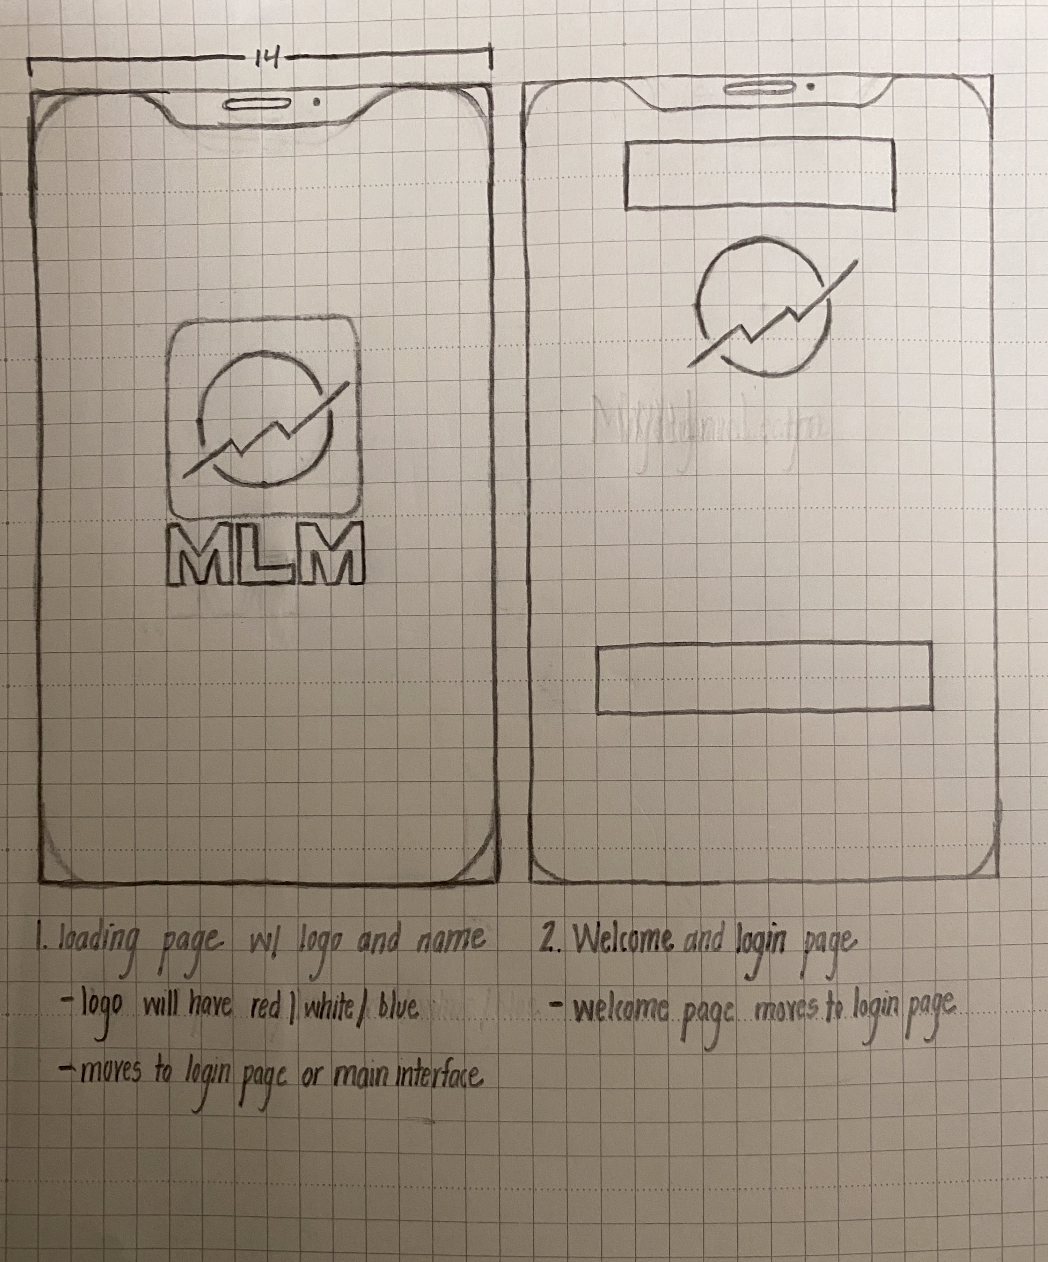 14
MLM
1. loading page w/ logo and name
- logo will have red / white / blue
- moves to login page or main interface
2. Welcome and login page
- welcome page moves to login page